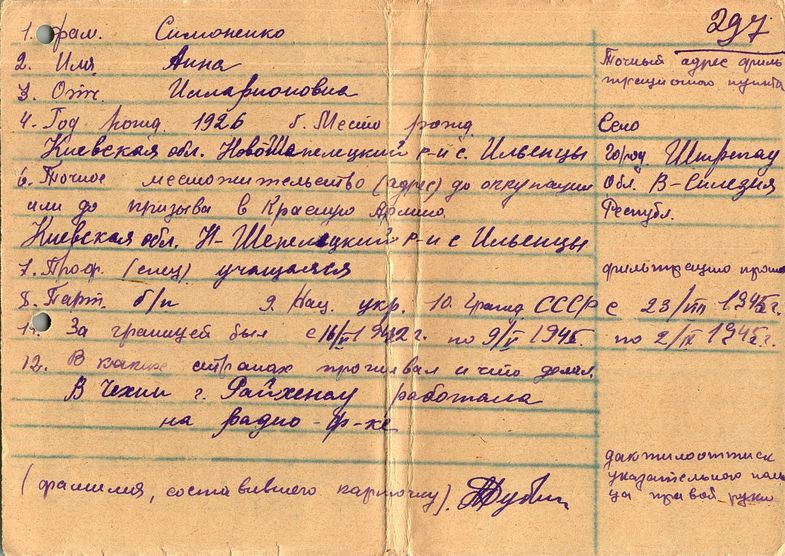 297
1. фам. Симоненко
2. Имя Анна
3. Отч. Илларионовна
4. Год рожд. 1926 5. Место рожд
Киевская обл. НовоШепелецкий р-н с. Ильенцы
6. Точное местожительство (адрес) до оккупации
или до призыва в Красную Армию.
Киевская обл. Н-Шепелецкий р-н с Ильенцы
7. Проф. (спец) учащаяся
8. Парт. б/п 9. Нац. укр. 10. Гражд. СССР
За границей был с 16/ 1942 г. по 9/V 1945
12. В каких странах проживал и что делал.
В Чехии г. Райхенау работала
на радио-ф-ке
(фамилия, составившего карточку).
Точный адрес филь
трационного пункта
Село
город Штрегау
Обл. В-Силезия
Республ.
фильтрацию прошла
с 23/VIII 1945 г.
по 2/IX 1945 г.
дактилооттиск
указательного паль
ца правой руки